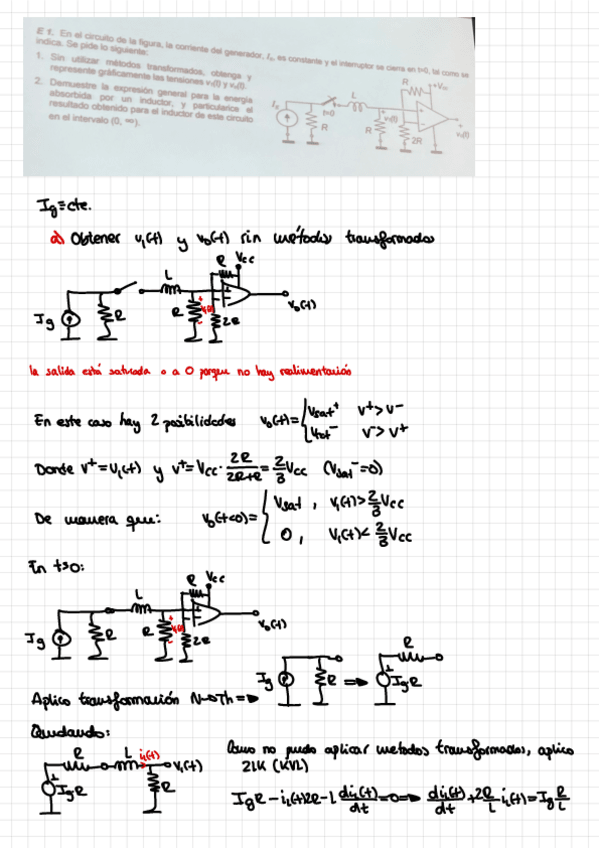 E 1. En el circuito de la figura, la corriente del generador, Ig, es constante y el interruptor se cierra en t=0, tal como se
indica. Se pide lo siguiente:
1. Sin utilizar métodos transformados, obtenga y
represente gráficamente las tensiones v₁(t) y v₀(t).
2. Demuestre la expresión general para la energía
absorbida por un inductor, y particularice el
resultado obtenido para el inductor de este circuito
en el intervalo (0, ∞).
Ig t=0 R L R v₁(t) R +Vcc 2R v₀(t)
Ig ≡ cte.
a) Obtener v₁(t) y v₀(t) sin métodos transformados
Ig R L R 2R R Vcc v₀(t)
la salida está saturada o a 0 porque no hay realimentación
En este caso hay 2 posibilidades v₀(t)= { Vsat⁺ V⁺>V⁻
V⁻>V⁺
Donde V⁺=V₁(t) y V⁺=Vcc· 2R/2R+R = 2/3 Vcc (Vsat⁻=0)
De manera que: v₀(t<0)= { Vsat, V₁(t)>2/3 Vcc
0, V₁(t)<2/3 Vcc
En t>0:
Ig R L R 2R R Vcc v₀(t)
Aplico transformación N→Th => Ig R => R IgR
Quedando:
R L iL(t) V₁(t) IgR R
Como no puedo aplicar metodos transformados, aplico
2LK (KVL)
IgR-iL(t)2R-L diL(t)/dt=0=> diL(t)/dt+2R/L iL(t)=Ig R/L